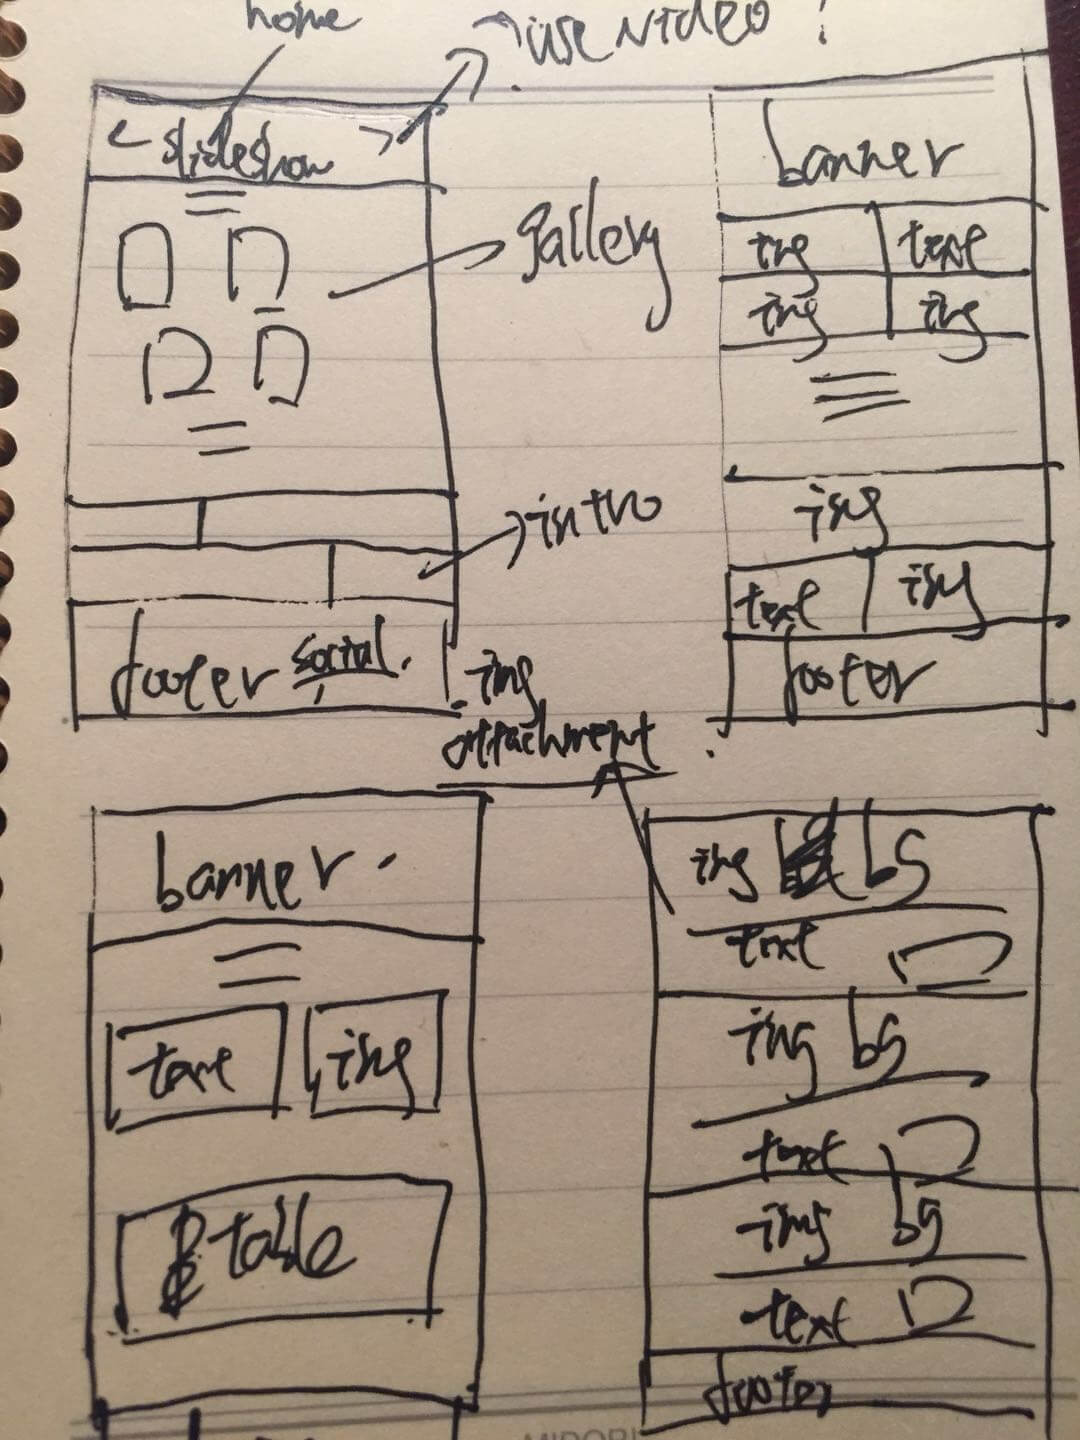 home
use video?
slideshow
gallery
intro
footer social.
banner
img text
img img
img
text img
footer
img
attachment
banner.
text img
table
img bg
text
img bg
text
img bg
text
footer